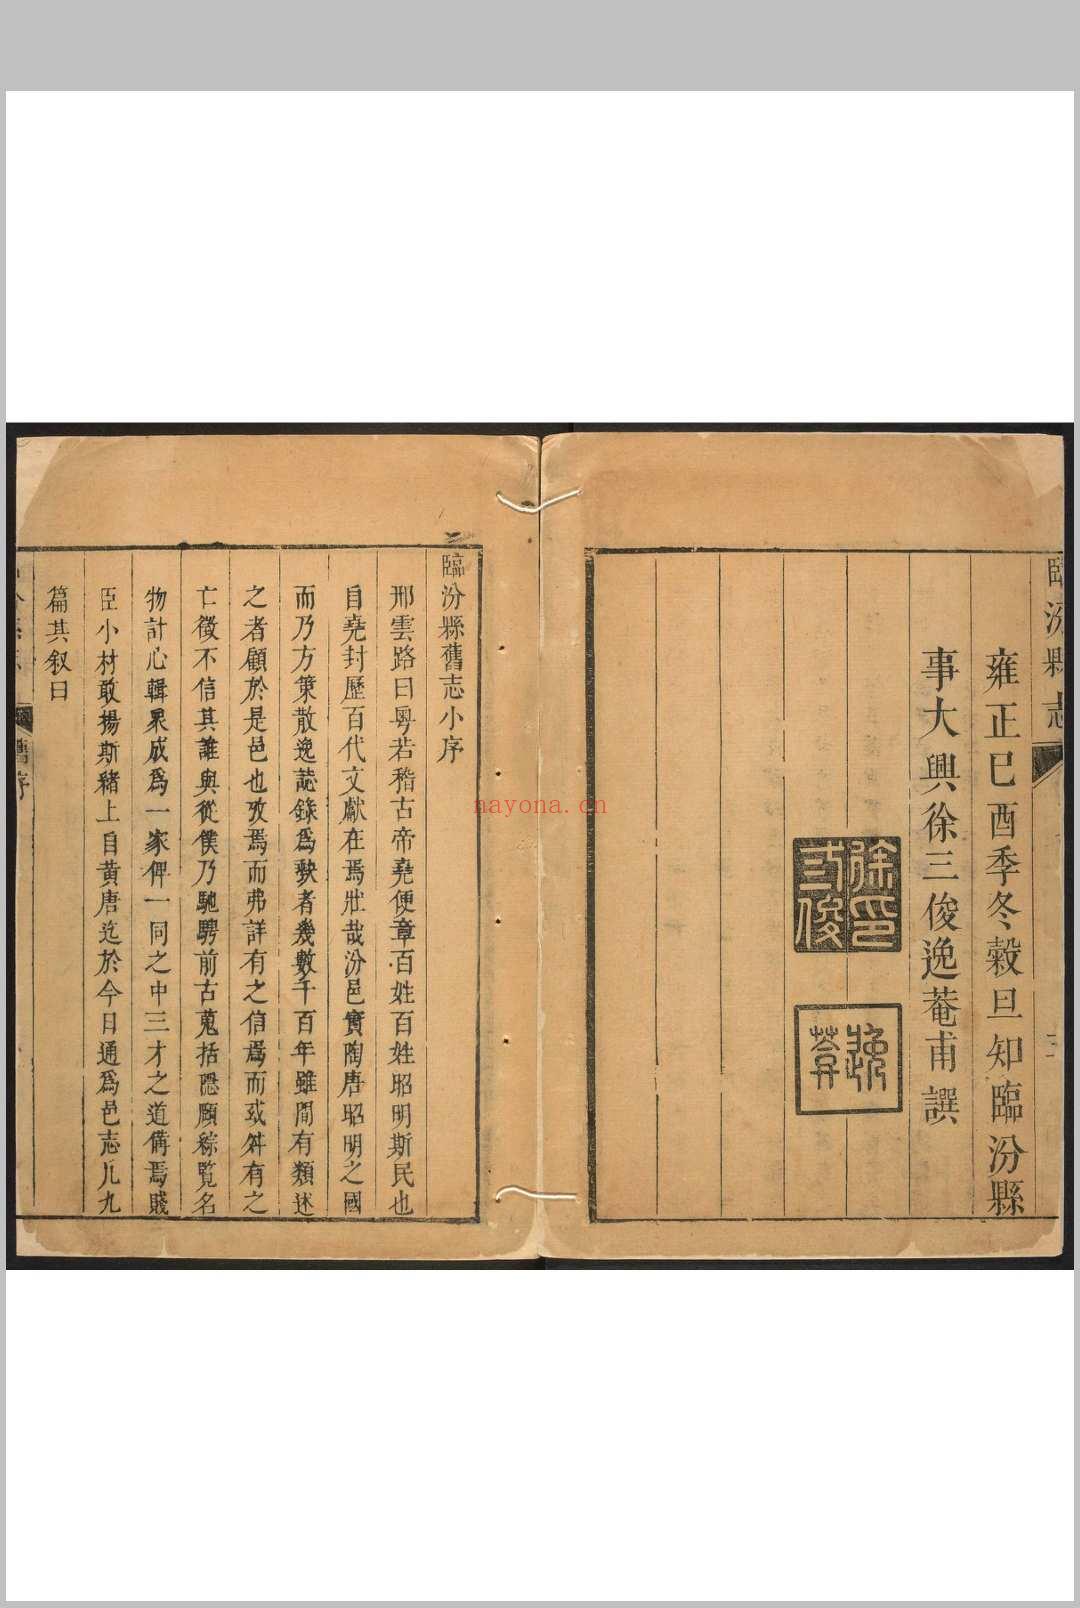 臨汾縣志
雍正巳酉季冬榖旦知臨汾縣
事大興徐三俊逸菴甫譔
徐三俊印
逸菴
臨汾縣舊志小序
邢雲路曰粵若稽古帝堯便章百姓百姓昭明斯民也
自堯封歷百代文獻在焉壯哉汾邑實陶唐昭明之國
而乃方策散逸誌錄爲歝者幾數千百年雖間有類述
之者顧於是邑也攷焉而弗詳有之信焉而或舛有之
亡徵不信其誰與從僕乃馳騁前古蒐括隱頤綜覽名
物計心輯杲成爲一家俾一同之中三才之道備焉賤
臣小材敢揚斯緒上自黄唐迄於今日通爲邑志凡九
篇其叙曰
舊序
nayona.cn